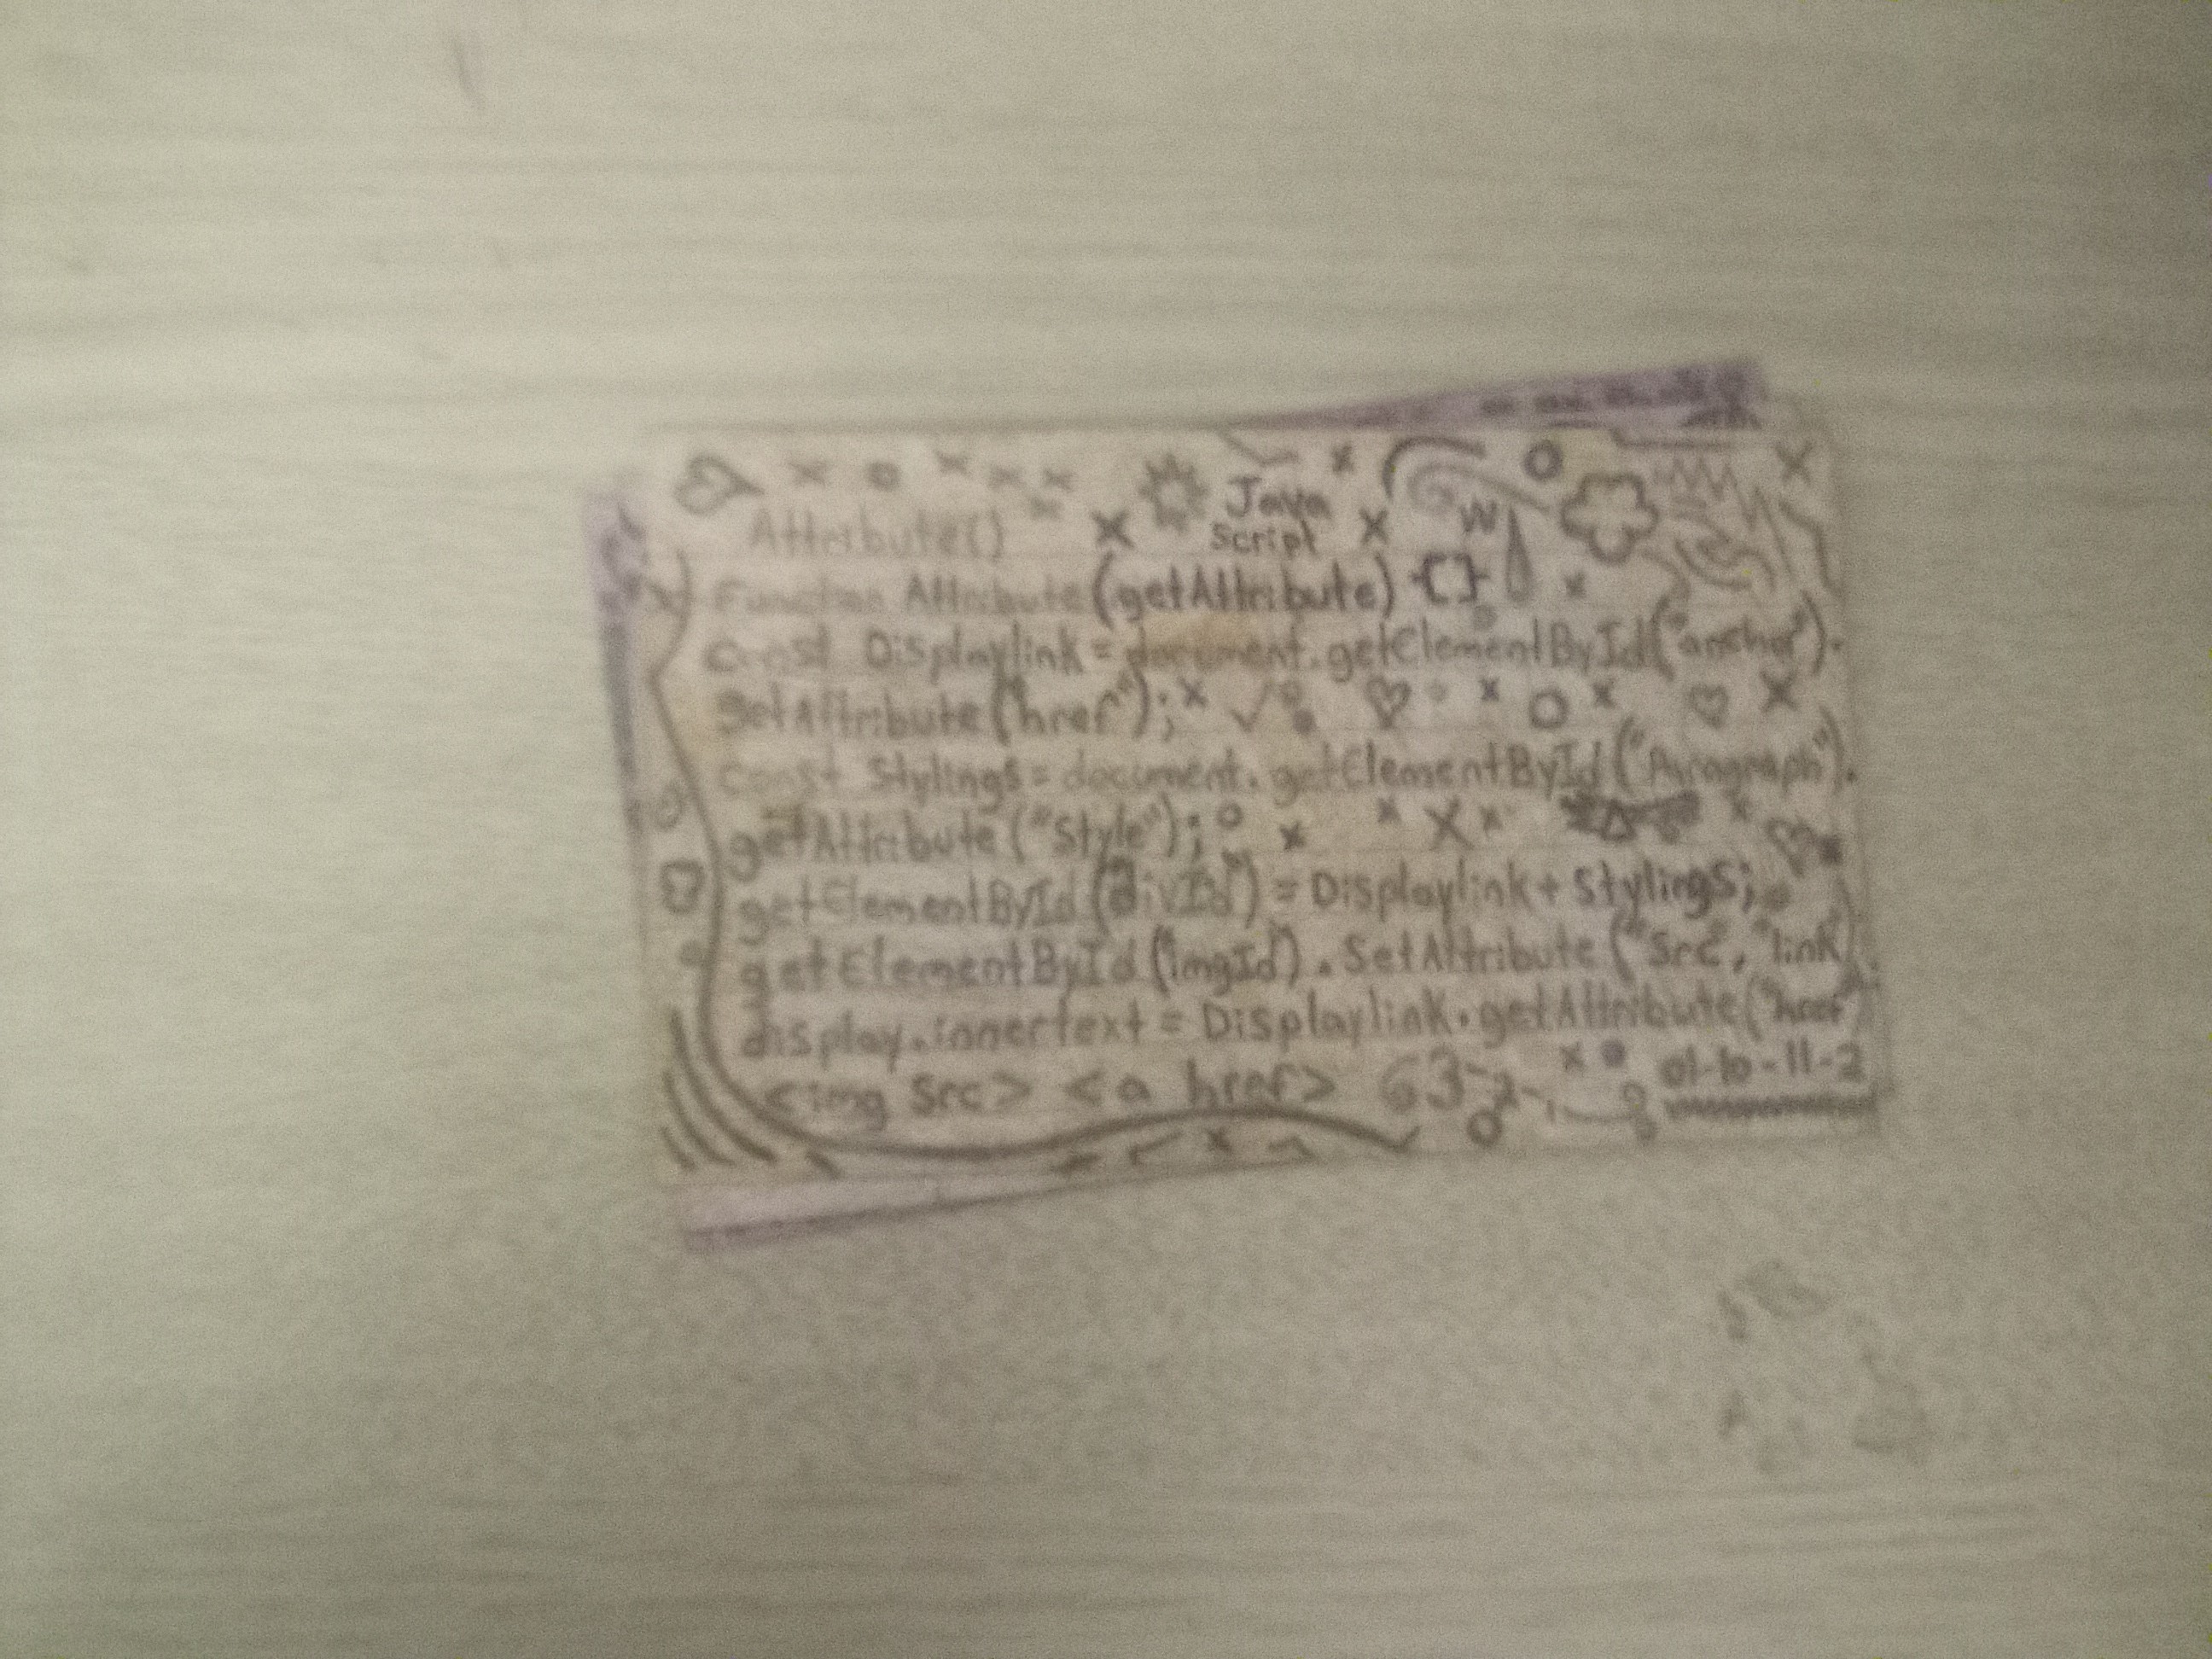 Java
Script
Attribute()
Function Attribute(getAttribute) {}
W
const Displaylink = document.getElementById("anchor").
getAttribute("href");
const Stylings = document.getElementById("Paragraph").
getAttribute("Style");
getElementById("divId") = Displaylink + Stylings;
getElementById("imgId").SetAttribute("Src", "link)
display.innertext = Displaylink.getAttribute("href)
<img Src> <a href> 63
01-10-11-2